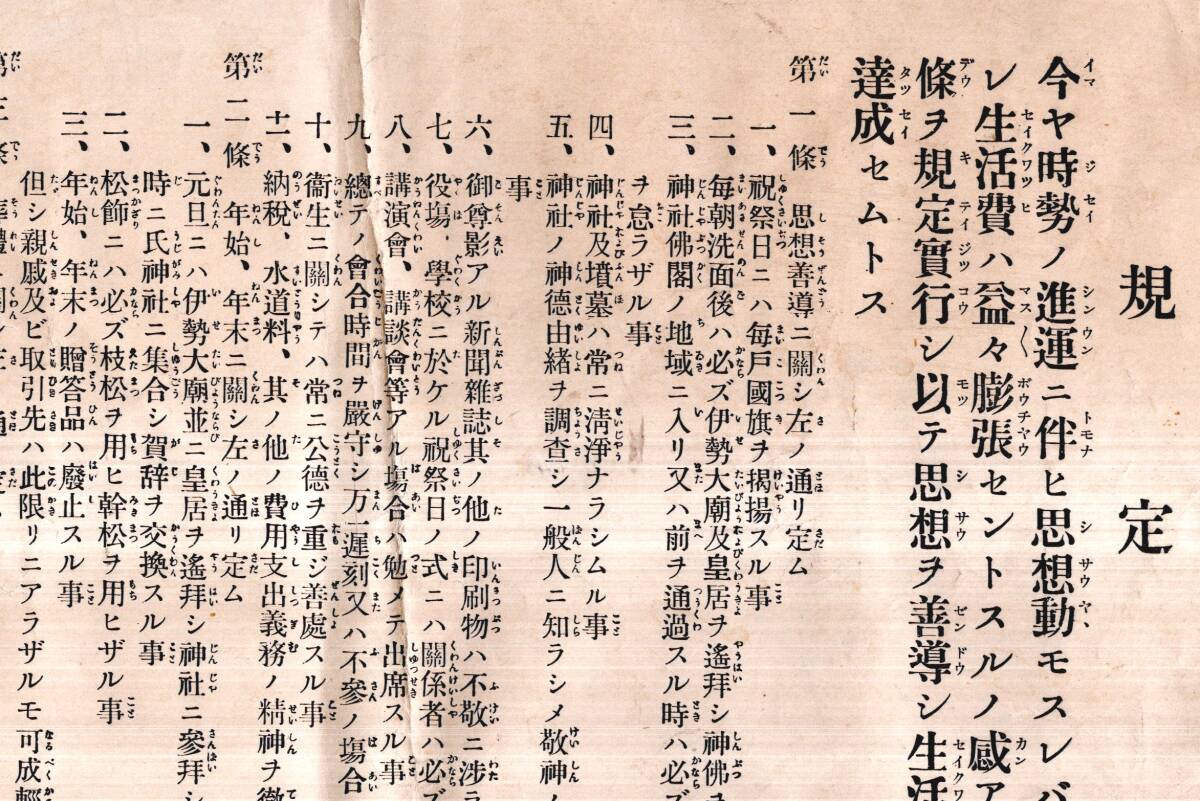 規定
今ヤ時勢ノ進運ニ伴ヒ思想動モスレバ
レ生活費ハ益々膨張セントスルノ感ア
條ヲ規定實行シ以テ思想ヲ善導シ生活
達成セムトス
第一條 思想善導ニ關シ左ノ通リ定ム
一、祝祭日ニハ毎戸國旗ヲ揭揚スル事
二、毎朝洗面後ハ必ズ伊勢大廟及皇居ヲ遙拜シ神佛ヲ
三、神社佛閣ノ地域ニ入リ又ハ前ヲ通過スル時ハ必ズ
ヲ怠ラザル事
四、神社及墳墓ハ常ニ淸淨ナラシムル事
五、神社ノ神德由緖ヲ調查シ一般人ニ知ラシメ敬神ノ
事
六、御尊影アル新聞雜誌其ノ他ノ印刷物ハ不敬ニ涉ラ
七、役塲、學校ニ於ケル祝祭日ノ式ニハ關係者ハ必ズ
八、講演會、講談會等アル塲合ハ勉メテ出席スル事
九、總テノ會合時間ヲ嚴守シ万一遲刻又ハ不參ノ塲合
十、衞生ニ關シテハ常ニ公德ヲ重ジ善處スル事
十一、納稅、水道料、其ノ他ノ費用支出義務ノ精神ヲ徹
第二條 年始、年末ニ關シ左ノ通リ定ム
一、元旦ニハ伊勢大廟並ニ皇居ヲ遙拜シ神社ニ參拜シ
時ニ氏神社ニ集合シ賀辞ヲ交換スル事
二、松飾ニハ必ズ枝松ヲ用ヒ幹松ヲ用ヒザル事
三、年始、年末ノ贈答品ハ廢止スル事
但シ親戚及ビ取引先ハ此限リニアラザルモ可成輕
第三條